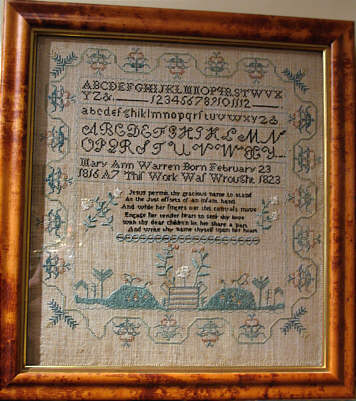 ABCDEFGHIJKLMNOPQRSTUVWX
YZ&. 123456789101112
abcdefghiklmnopqrstuvwxyz&
ABCDEFGHIKLMN
OPQRSTUVWXY
Mary Ann Warren Born February 23
1816 A7 This Work Was Wrought 1823
Jesus permit thy gracious name to stand
As the first efforts of an infants hand
And while her fingers oer this canvass move
Engage her tender heart to seek thy love
With thy dear children let her share a part
And write thy name thyself upon her heart